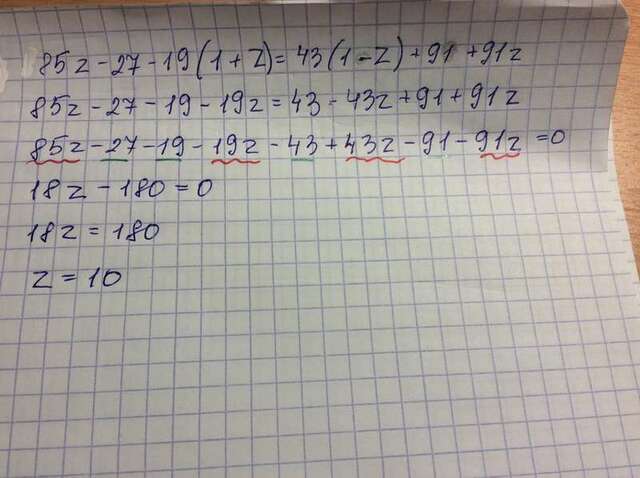 85z - 27 - 19(1+z) = 43(1-z) + 91 + 91z
85z - 27 - 19 - 19z = 43 - 43z + 91 + 91z
85z - 27 - 19 - 19z - 43 + 43z - 91 - 91z = 0
18z - 180 = 0
18z = 180
z = 10